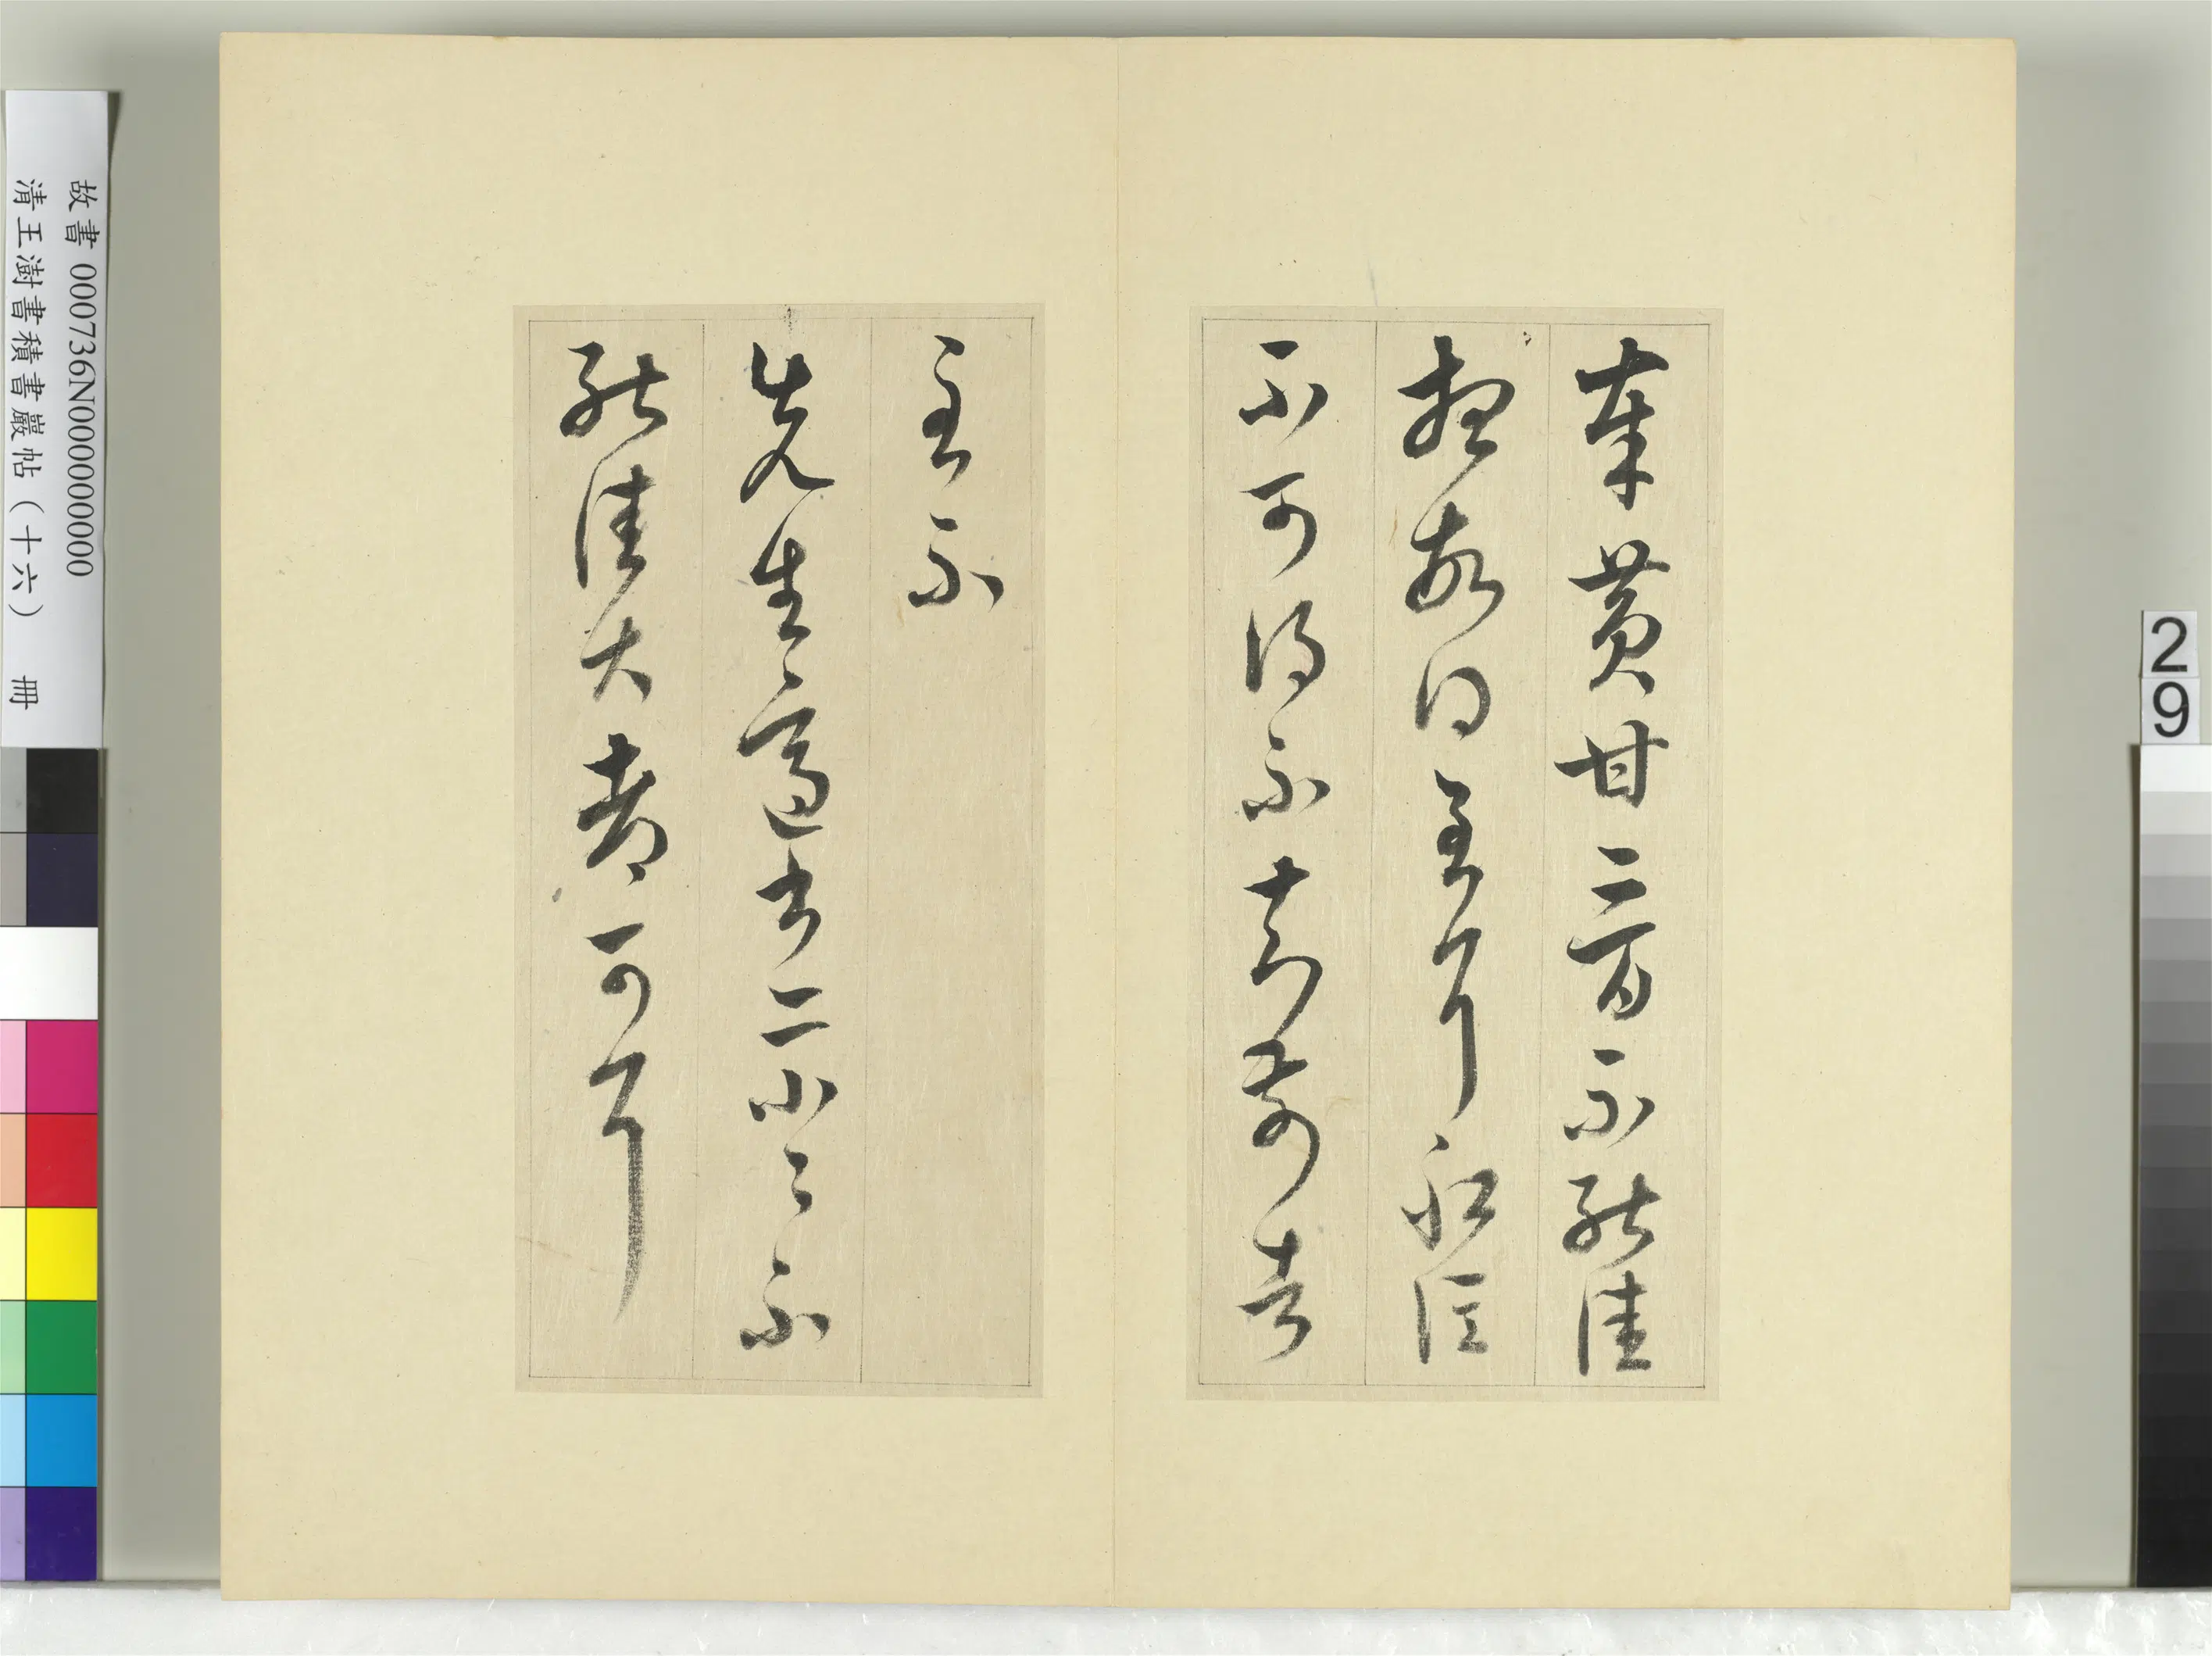 奉黃甘二百不能佳
想故得至耳船信
不可得不知前者
至不
先生適書亦小小不
能佳大都可耳
故書 000736N000000000
清王澍書積書巖帖（十六） 冊
29